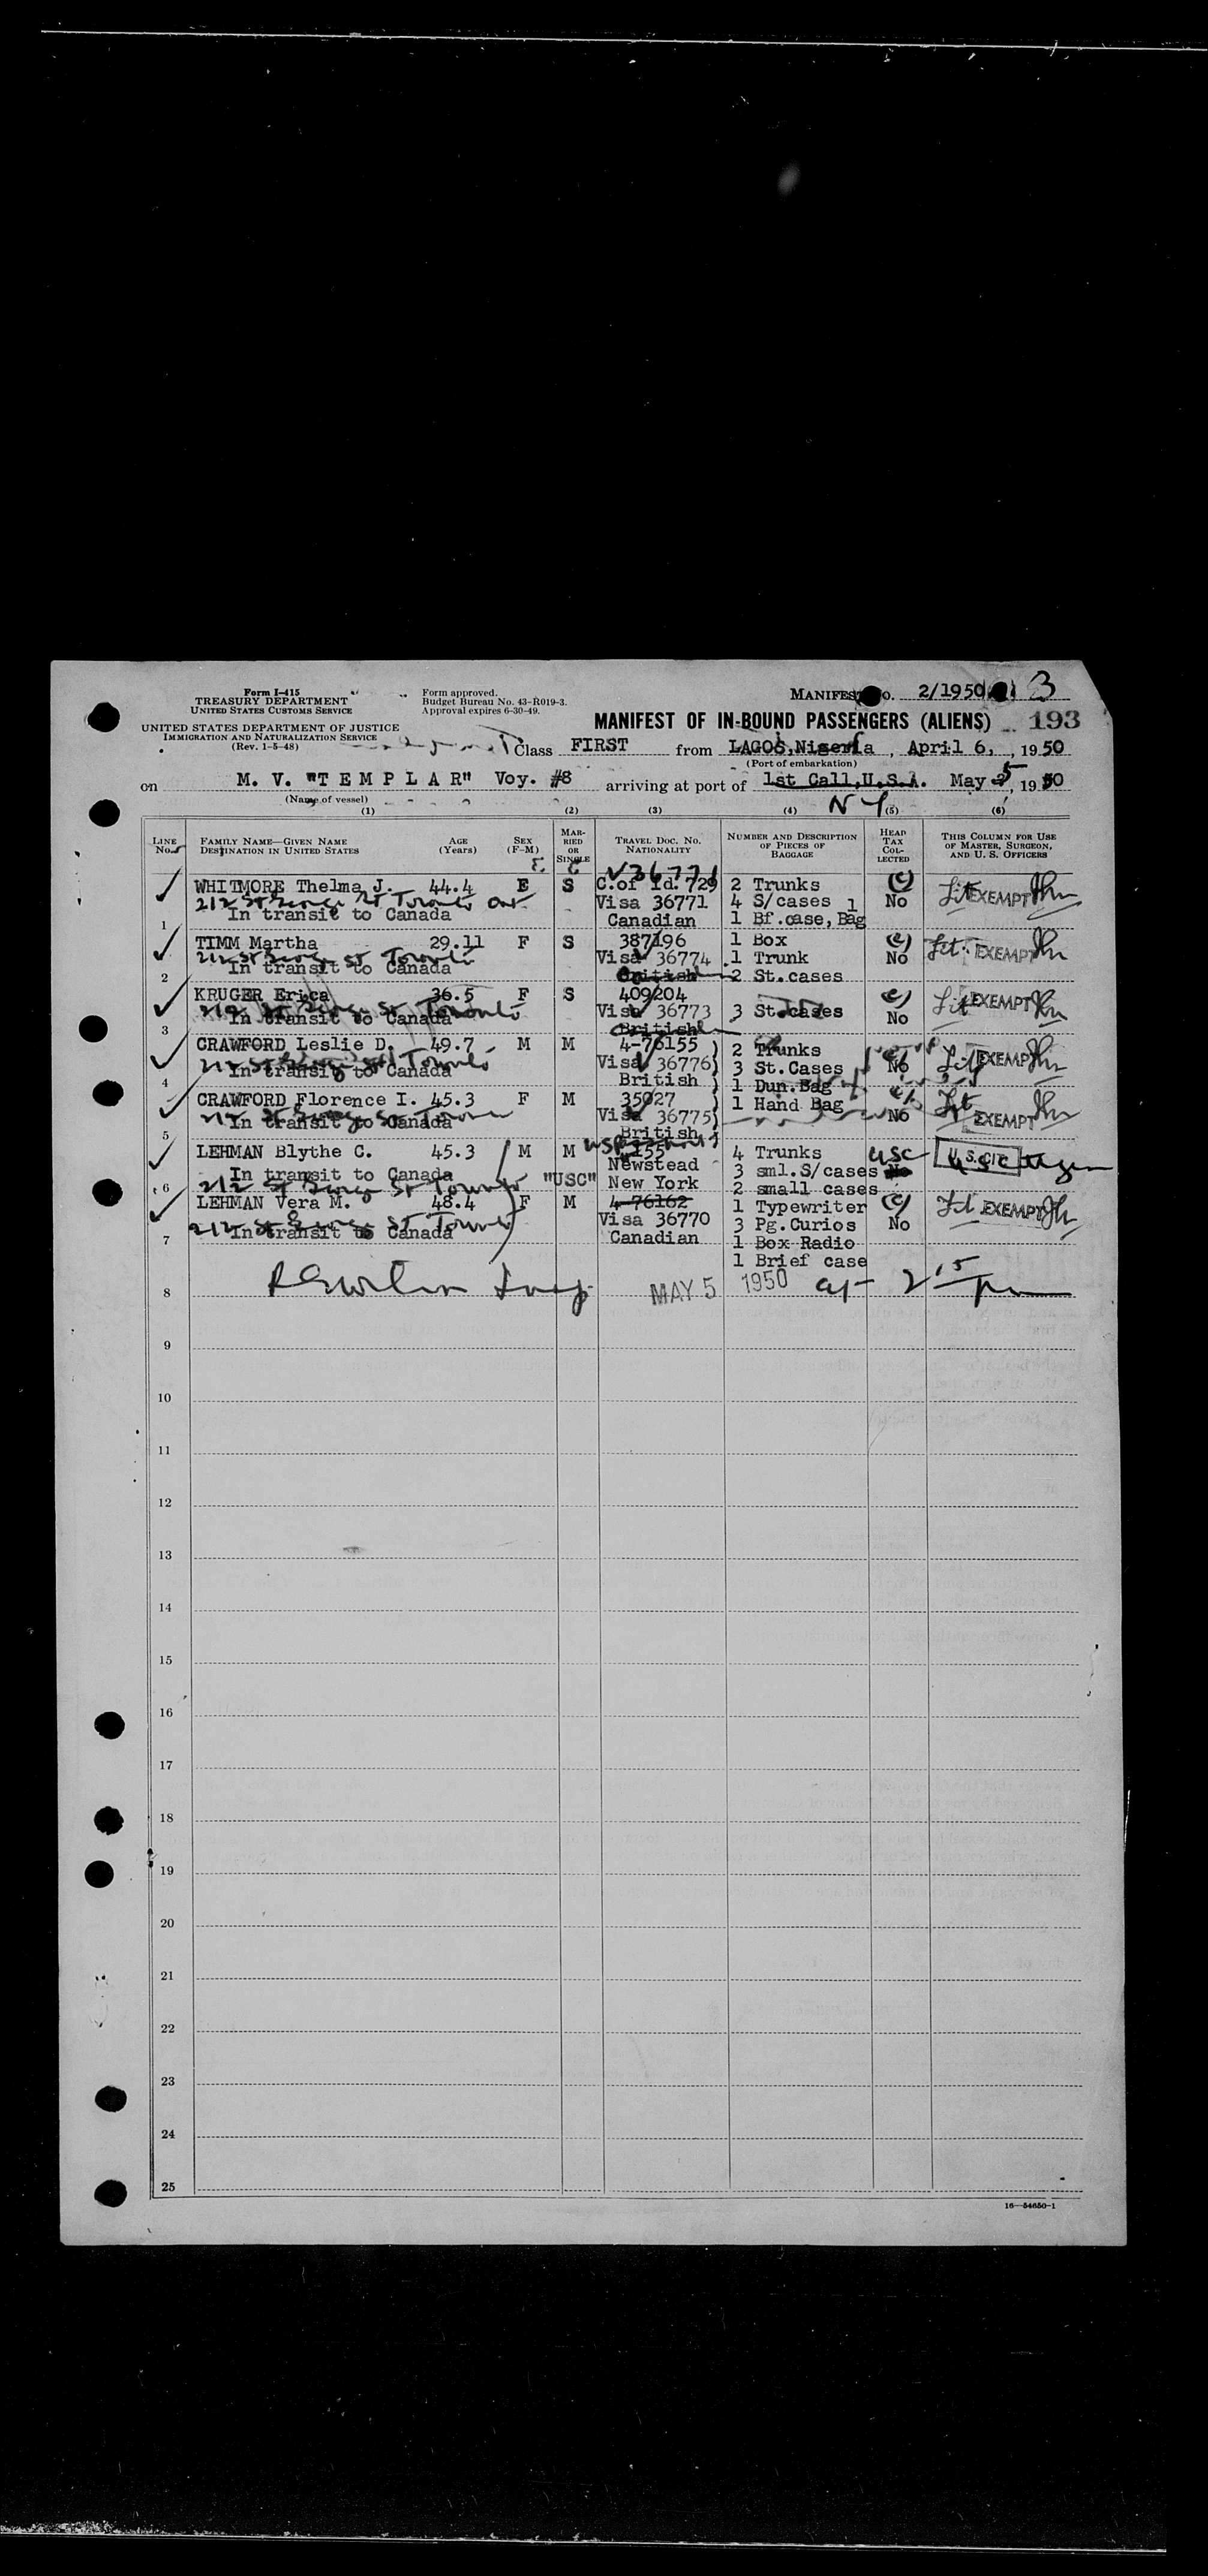 Form I-415
TREASURY DEPARTMENT
UNITED STATES CUSTOMS SERVICE
UNITED STATES DEPARTMENT OF JUSTICE
IMMIGRATION AND NATURALIZATION SERVICE
(Rev. 1-5-48)
Form approved.
Budget Bureau No. 43-R019-3.
Approval expires 6-30-49.
MANIFEST NO. 2/1950 3
MANIFEST OF IN-BOUND PASSENGERS (ALIENS) 193
Class FIRST from LAGOS, Nigeria, April 6, 1950
(Port of embarkation)
on M. V. "TEMPLAR" Voy. #8 arriving at port of 1st Call, U.S.A. May 5, 1950
(Name of vessel) N Y
(1) (2) (3) (4) (5) (6)
LINE No. FAMILY NAME—GIVEN NAME DESTINATION IN UNITED STATES AGE (Years) SEX (F-M) MARRIED OR SINGLE TRAVEL DOC. NO. NATIONALITY NUMBER AND DESCRIPTION OF PIECES OF BAGGAGE HEAD TAX COLLECTED THIS COLUMN FOR USE OF MASTER, SURGEON, AND U. S. OFFICERS
V36771
WHITMORE Thelma J. 44.4 F S C.of Id. 729 2 Trunks (c)
212 St George St Toronto Ont Visa 36771 4 S/cases 1 No EXEMPT
1 In transit to Canada Canadian 1 Bf.case, Bag
TIMM Martha 29.11 F S 387196 1 Box (c)
212 St George St Toronto Visa 36774 1 Trunk No EXEMPT
2 In transit to Canada British 2 St.cases
KRUGER Erica 36.5 F S 409204 (c)
212 St George St Toronto Visa 36773 3 St.cases No EXEMPT
3 In transit to Canada British
CRAWFORD Leslie D. 49.7 M M 4-76155 ) 2 Trunks
212 St George St Toronto Visa 36776) 3 St.Cases No EXEMPT
4 In transit to Canada British ) 1 Dun.Bag
CRAWFORD Florence I. 45.3 F M 35027 ) 1 Hand Bag
212 St George St Toronto Visa 36775) No EXEMPT
5 In transit to Canada British )
LEHMAN Blythe C. 45.3 M M 155 4 Trunks USC U. S. CIT
In transit to Canada "USC" Newstead 3 sml.S/cases No
6 212 St George St Toronto New York 2 small cases
LEHMAN Vera M. 48.4 F M 4-76162 1 Typewriter (c)
212 St George St Toronto Visa 36770 3 Pg.Curios No EXEMPT
7 In transit to Canada Canadian 1 Box Radio
1 Brief case
8 MAY 5 1950 2 15 pm
9
10
11
12
13
14
15
16
17
18
19
20
21
22
23
24
25
16—54650-1